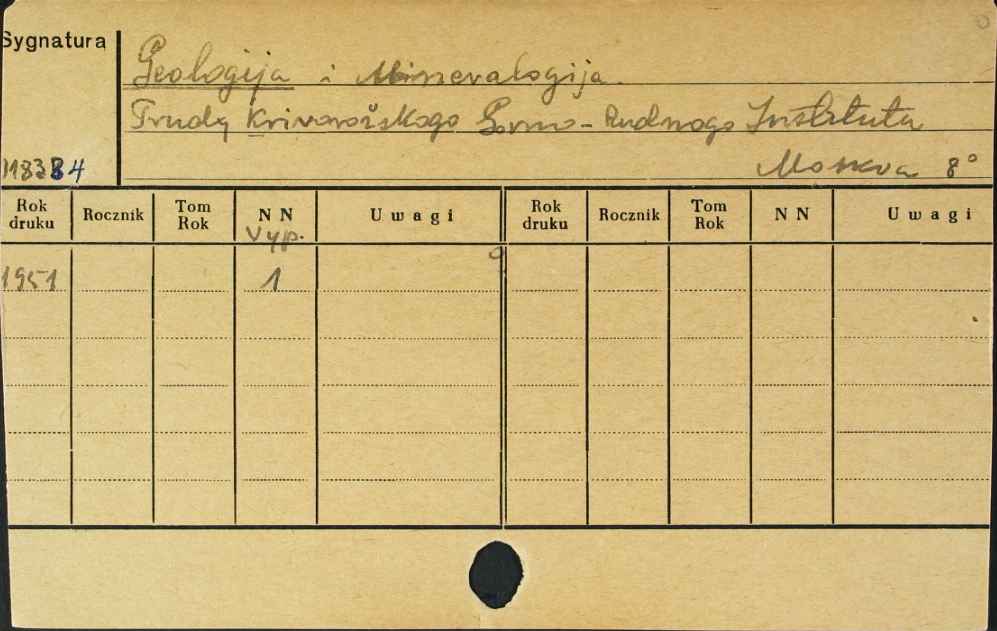 Sygnatura
Geologija i Mineralogija.
Trudy Krivorožskogo Gorno-Rudnogo Instituta
Moskva 8°
Rok druku Rocznik Tom Rok NN Uwagi Rok druku Rocznik Tom Rok NN Uwagi
Vyp.
1951 1